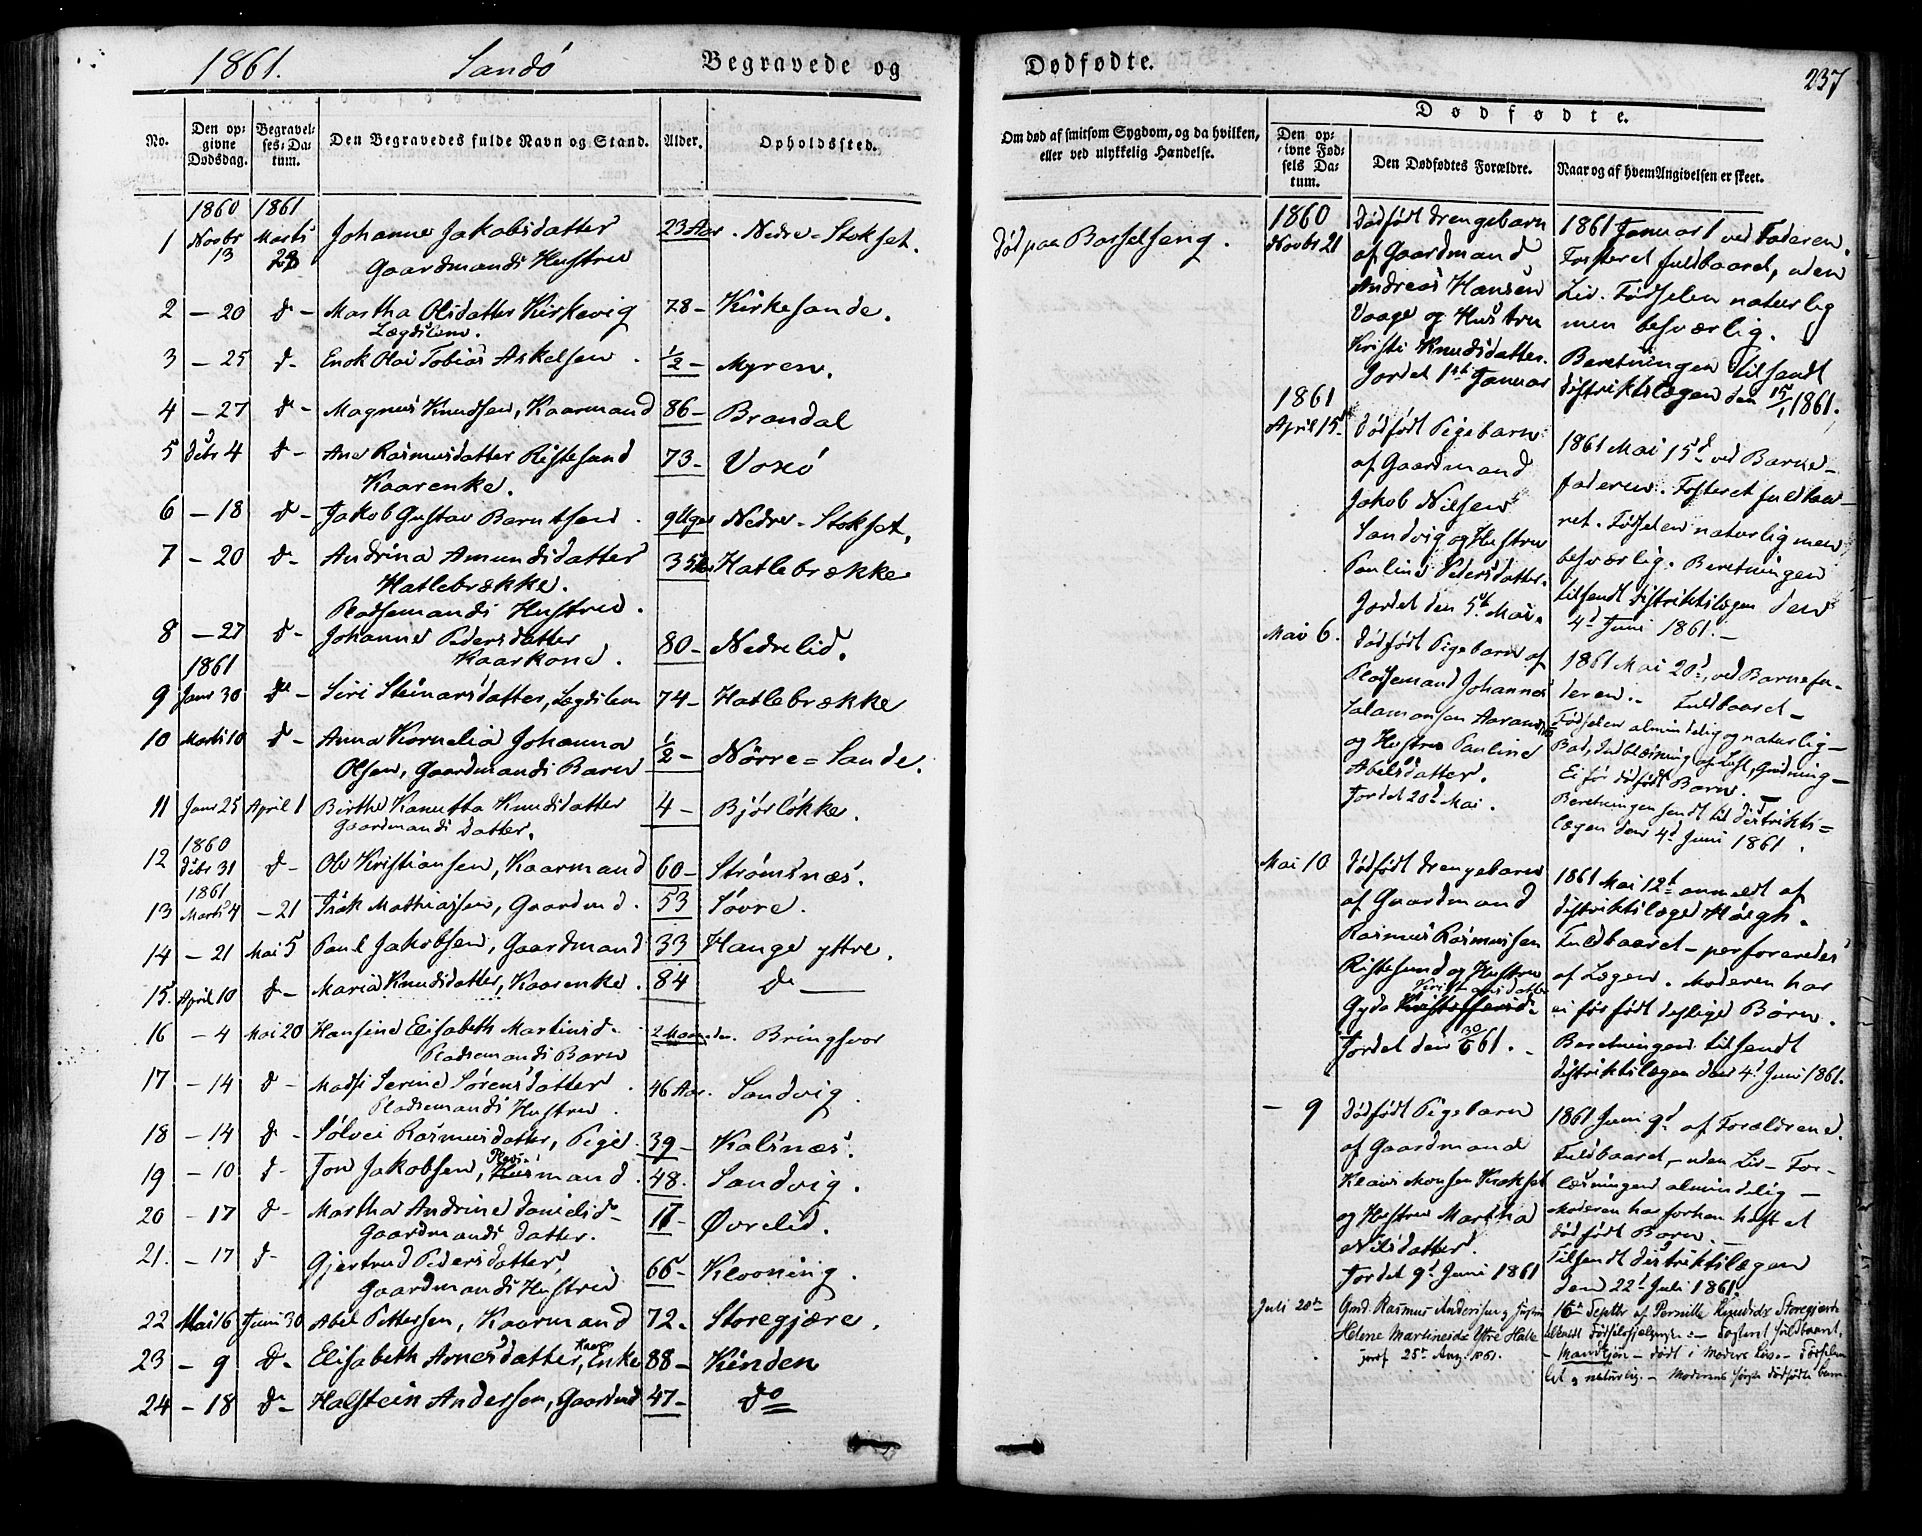 1861. Sandö Begravede og
No. Den opgivne Dødsdag. Begravelses-Datum. Den Begravedes fulde Navn og Stand. Alder. Opholdssted.
1860 1861
1 Novbr 13 Marts 28 Johanne Jakobsdatter 23 Aar. Nedre-Stokset.
Gaardmands Hustru
2 – 20 d– Martha Olsdatter Kirkevig 78– Kirkesande.
Lægdslem.
3 – 25 d– Enok Olai Tobias Askelsen. 1/2– Myren.
4 – 27 d– Magnus Knudsen, Kaarmand 86– Brandal
5 Debr 4 d– Ane Rasmusdatter Ristesund 73– Voxö
Kaarenke.
6 – 18 d– Jakob Gustav Berntsen. 9 Uger Nedre-Stokset.
7 – 20 d– Andrina Amundsdatter 35 Aar Hatlebrække
Hatlebrække.
Pladsemands Hustru.
8 – 27 d– Johanne Pedersdatter 80– Nedrelid.
Kaarkone.
1861
9 Janr 30 do Siri Steinarsdatter, Lægdslem 74– Hatlebrække
10 Marts 10 d– Anna Kornelia Johanna 1/2– Nörre=Sande.
Olsen, Gaardmands Barn
11 Janr 25 April 1 Birthe Kanutta Knudsdatter 4– Bjørløkke.
Gaardmands Datter.
1860
12 Debr 31 d– Ole Kristiansen, Kaarmand 60– Strömsnæs.
1861
13 Marts 4 –21 Isak Mathiassen, Gaardmd. 53 Søvre.
14 – 21 Mai 5 Paul Jakobsen, Gaardmand 33 Hauge yttre.
15. April 10 d– Maria Knudsdatter, Kaarenke. 84 do
16 – 4 Mai 20 Hansine Elisabeth Martinsd. 2 Maaneder. Bringsvor
Pladsemands Barn
17 – 14 d– Madsi Serine Sörensdatter. 46 Aar. Sandvig.
Pladsemands Hustru.
18 – 14 d– Sølvei Rasmusdatter, Pige. 39– Kalsnæs.
19 – 10 d– Jon Jakobsen, Plads-mand. 48. Sandvig.
20 – 17 d– Martha Andrine Danielsd– 17– Øvrelid.
Gaardmands Datter.
21. – 17 d– Gjertrud Pedersdatter, 66– Klooning.
Gaardmands Hustru
22 Mai 16 Juni 30 Abel Pettersen, Kaarmand 72. Storegjære.
23 – 9 D– Elisabeth Arnesdatter, Kaar Enke 88– Kinden
24 – 18 d– Halstein Andersen, Gaardmd 47– do
Dødfødte. 237
Om død af smitsom Sygdom, og da hvilken, eller ved ulykkelig Handelse.
Dødfødte.
Den opgivne Fødsels Datum. Den Dødfødtes Forældre. Naar og af hvem Angivelsen er skeet.
Død paa Barselseng.
1860
Novbr 21
Dødfødt Drengebarn
af Gaardmand
Andreas Hansen
Vaage og Hustru
Kristi Knudsdatter.
Jordet 1st Januar
1861 Januar 1 ved Faderen.
Fosteret fuldbaaret, uden
Liv. Fødselen naturlig
men besværlig.
Beretningen tilsendt
distriktslægen den 15/1 1861.
1861
April 15de
Dødfødt Pigebarn
af Gaardmand
Jakob Nilsen
Sandvig og Hustru
Pauline Pedersdatter.
Jordet den 5te Mai.
1861 Mai 15d ved Barne-
faderen. Fosteret fuldbaa-
ret. Fødselen naturlig men
besværlig. Beretningen
tilsendt distriktslægen den
4d Juni 1861.–
Mai 6.
Dødfødt Pigebarn af
Pladsemand Johannes
Salamonsen
og Hustru Pauline
Abelsdatter.
Jordet 20d Mai.
1861 Mai 20d, ved Barnefa-
deren.– Fuldbaaret–
Fødselen almindelig og naturlig–
Bad, Indblæsning af Luft, Gnidning–
Ei før dødfødt Barn.–
Beretningen sendt til distrikts=
lægen den 4d Juni 1861.
Mai 10
Dødfødt Drengebarn
af Gaardmand
Rasmus Rasmussen
Ristesund og Hustru
Kristiansdatter
Gyda
Jordet den 30/5 61.–
1861 Mai 12t anmeldt af
distriktslæge Höegh.
Fuldbaaret–perforeredes
af Lægen. Moderen har
ei før født deslige Børn.
Beretningen tilsendt
distriktslægen den 4d Juni 1861.
– 9
Dødfødt Pigebarn
af Gaardmand
Klaus Monsen
og Hustru Martha
Nilsdatter.
Jordet 9d Juni 1861
1861 Juni 9d af Forældrene.
Fuldbaaret, uden Liv– For-
løsningen almindelig–
Moderen har forhen havt et
dødfødt Barn.–
Tilsendt Distriktslægen
den 22d Juli 1861.
Juli 20de
Gmd. Rasmus Andersen og Hustru
Helene Martinesdr Ytre Halle
jord. 25de Aug. 1861.
16de Septbr af Pernille Knudsdr Storegjære
– Fosteret fuldbaaret,
– Mandkjøn – dødt i Moders Liv.– Fødselen
let og naturlig.– Moderens dødfødte barn